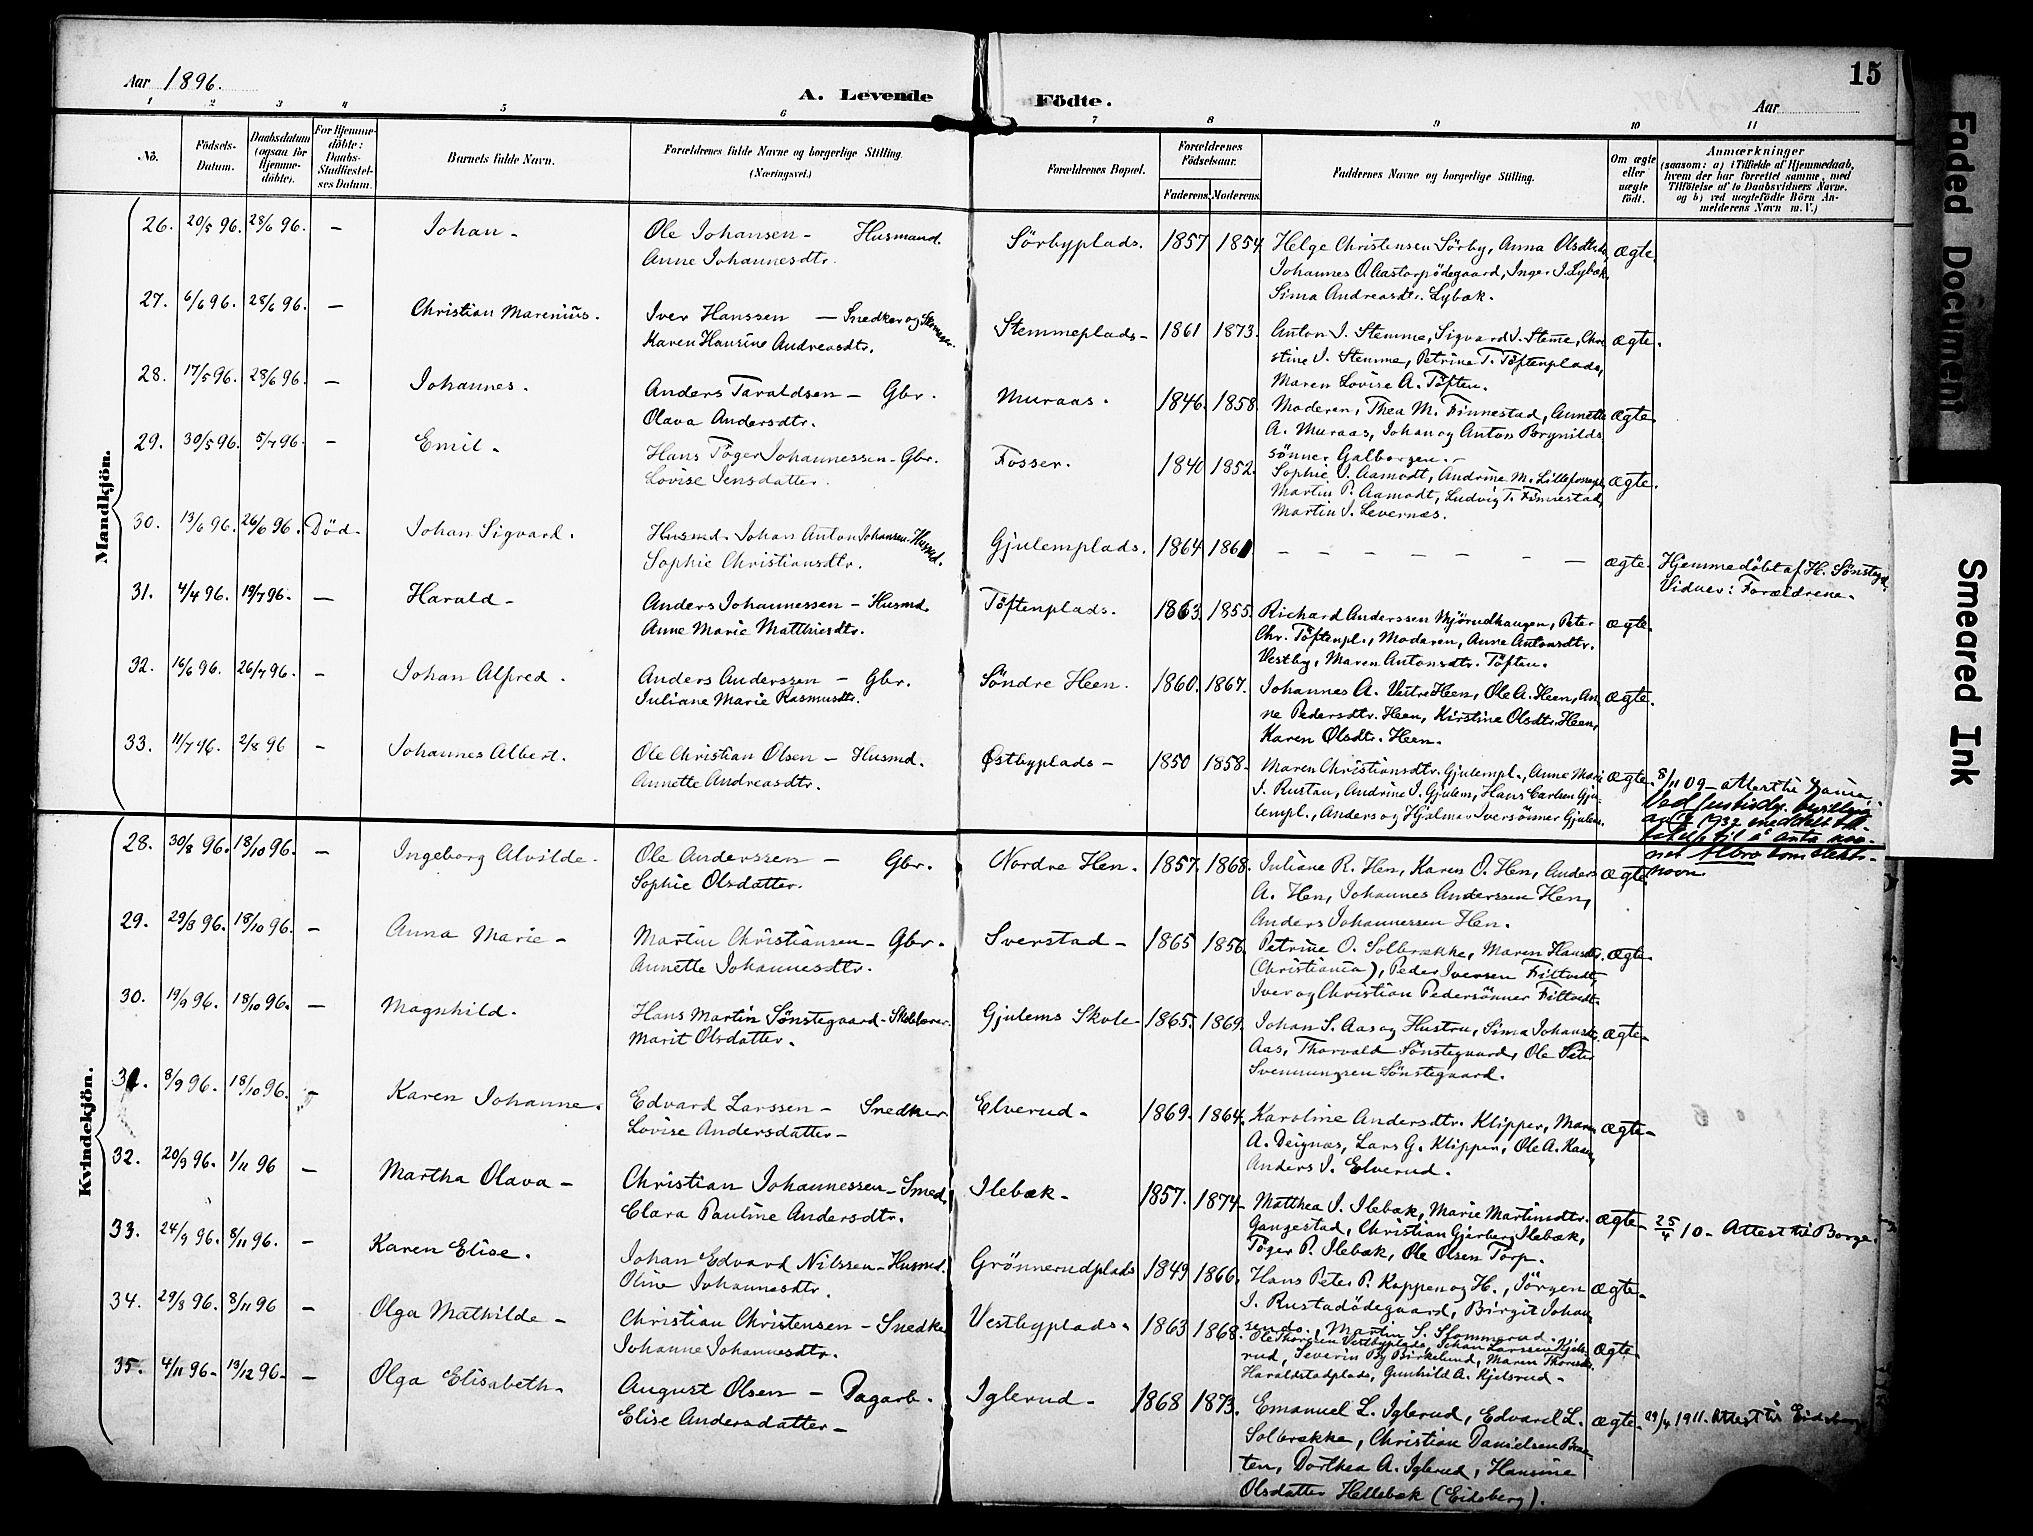 Aar 1896.
A. Levende Födte.
Aar
15
1 2 3 4 5 6 7 8 9 10 11
No. Födsels-Datum. Daabsdatum (ogsaa for Hjemmedöbte). For Hjemmedöbte: Daabs-Stadfæstelses Datum. Barnets fulde Navn. Forældrenes fulde Navne og borgerlige Stilling. (Næringsvei.) Forældrenes Bopæl. Forældrenes Födselsaar. Faderens. Moderens. Faddernes Navne og borgerlige Stilling. Om ægte eller uægte födt. Anmærkninger (saasom: a) i Tilfælde af Hjemmedaab, hvem der har forrettet samme, med Tilföielse af to Daabsvidners Navne, og b) ved uægtefödte Börn Anmelderens Navn m. V.)
Mandkjön.
26. 20/5 96. 28/6 96. – Johan – Ole Johansen – Husmand. Sörbyplads. 1857 1854 Helge Christensen Sörby, Anna ægte.
Anne Johannesdtr. Johannes Inger J. Lybæk,
Sima Andreasdtr. Lybæk.
27. 6/6 96. 28/6 96. – Christian Marenius. Iver Hanssen – Snedker og Stemmeplads – 1861 1873. Anton I. Stemme, Sigvard I. Steme, Chri ægte.
Karen Hansine Andreasdtr. stine I. Stemme, Petrine T. Töftenplads,
Maren Lovise A. Töften.
28. 17/5 96. 28/6 96. – Johannes. Anders Taraldsen – Gbr. Muraas. 1846. 1858. Moderen, Thea M. Finnestad, Annette ægte.
Olava Andersdtr. A. Muraas, Johan og Anton Brynilds
sönner Galborgen.
29. 30/5 96. 5/7 96. – Emil. Hans Töger Johannessen – Gbr. Fosser. 1840 1852. Sophie J. Aamodt, Andrine M. ægte.
Lovise Jensdatter. Martin P. Aamodt, Ludvig T. Finnestad,
Martin J. Levernæs.
30. 13/6 96. 26/6 96. Död. Johan Sigvard. Husmd. Johan Anton Johansen. Husmd. Gjulemplads. 1864 1861 – – – – – – – ægte. Hjemmedöbt af H. Sönstegd.
Sophie Christiansdtr. Vidner: Forældrene.
31. 4/4 96. 19/7 96. – Harald – Anders Johannessen – Husmd. Töftenplads. 1863. 1855. Richard Anderssen Mjörudhaugen, Peter ægte.
Anne Marie Matthiesdtr. Chr. Töftenpl., Moderen, Anne Antonsdtr.
Vestby, Maren Antonsdtr. Töften.
32. 16/6 96. 26/7 96. – Johan Alfred. Anders Anderssen – Gbr. Söndre Heen. 1860. 1867. Johannes A. Vestre Heen, Ole A. Heen, An ægte.
Juliane Marie Rasmusdtr. ne Pedersdtr. Heen, Kirstine Olsdtr. Heen,
Karen Olsdtr. Heen.
33. 11/7 96. 2/8 96 – Johannes Albert. Ole Christian Olsen – Husmd. Østbyplads – 1850 1858. Maren Christiansdtr. Gjulempl., Anne Marie ægte. 8/11 09 – attest til
Annette Andreasdtr. J. Rustau, Andrine J. Gjulem, Hans Carlsen Gju
lempl., Anders og Hjalmar Iversönner Gjulem.
1932 meddelt til
til å anta nav
net Albro som slekts-
navn.
Kvindekjön.
28. 30/8 96. 18/10 96. – Ingeborg Alvilde. Ole Anderssen – Gbr. Nordre Hen. 1857. 1868. Juliane R. Hen, Karen O. Hen, Anders ægte
Sophie Olsdatter. A. Hen, Johannes Anderssen Hen,
Anders Johannessen Hen.
29. 29/8 96. 18/10 96. – Anna Marie – Martin Christiansen – Gbr. Sverstad – 1865 1856. Petrine O. Solbrække, Maren Hansdtr. ægte
Annette Johannesdtr. (Christiania), Peder Iversen Filtvedt,
Iver og Christian Pedersönner Filtvedt.
30. 19/9 96. 18/10 96. – Magnhild. Hans Martin Sönstegaard – Skolelærer. Gjulems Skole – 1865. 1869. Johan S. Aas og Hustru, Sima Johansdtr. ægte –
Marit Olsdatter. Aas, Thorvald Sönstegaard, Ole Peter
Svennungsen Sönstegaard.
31. 8/9 96. 18/10 96. – Karen Johanne. Edvard Larssen – Snedker Elverud – 1869. 1864. Karoline Andersdtr. Klipper, Maren ægte –
Lovise Andersdatter – A. Deignæs, Lars G. Klipper, Ole A.
Anders J. Elverud.
32. 20/9 96. 1/11 96 – Martha Olava – Christian Johannessen – Smed. Ilebæk – 1857. 1874 – Matthea J. Ilebæk, Marie Martinsdtr. ægte – 25/4 10 – Attest til Borge.
Clara Pauline Andersdtr. Gangestad, Christian Gjerberg Ilebæk,
Töger P. Ilebæk, Ole Olsen Torp.
33. 24/9 96. 8/11 96. – Karen Elise. Johan Edvard Nilssen – Husmd. Grönnerudplads 1849 1866. Hans Peter P. Kappen og H., Jörgen ægte –
Oline Johannesdtr. J. Rustadödegaard, Birgit Johan
sensdr., Martin S. Slommerud.
34. 29/8 96. 8/11 96 – Olga Mathilde – Christian Christensen – Snedker Vestbyplads – 1863 1868. Ole Thoresen Vestbyplads, Johan Larssen Kjels ægte
Johanne Johannesdtr. rud, Severin By Birkelund, Maren
Haraldstadplads, Gunhild A. Kjelsrud –
35. 4/11 96 – 13/12 96 – – Olga Elisabeth – August Olsen – Dagarb. Iglerud – 1868 1873. Emanuel L. Iglerud, Edvard L. ægte – 29/4 1911. Attest til Eidsberg
Elise Andersdatter – Solbrække, Christian Danielsen Braa-
ten, Dorthea A. Iglerud, Hansine
Olsdatter Hellebæk (Eidsberg).
Faded Document
Smeared Ink